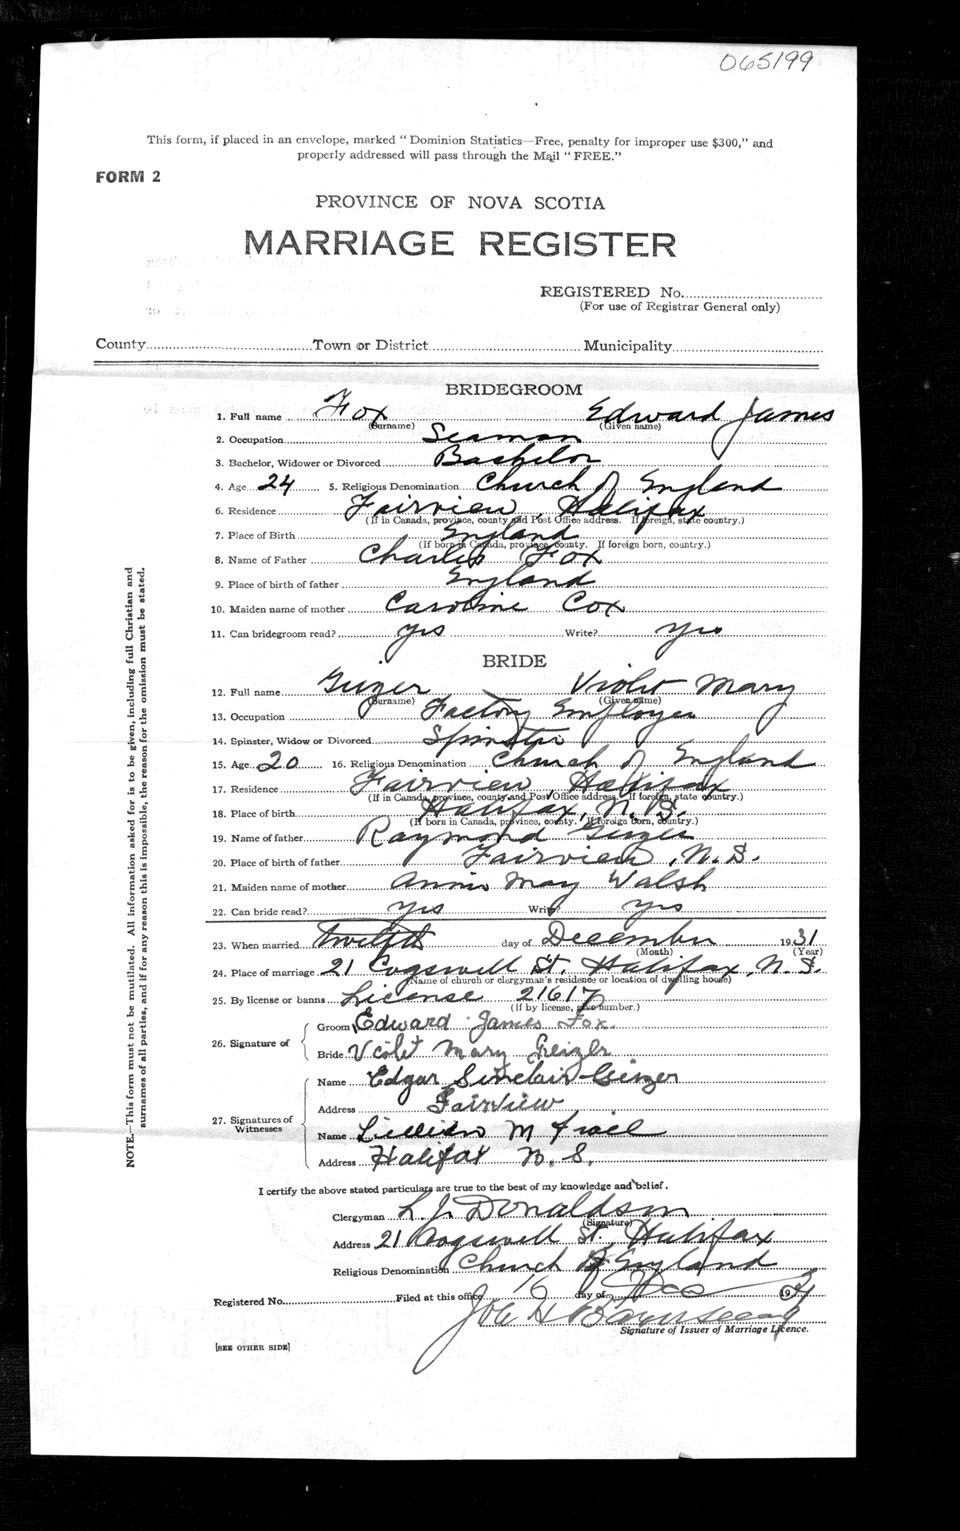 065199
This form, if placed in an envelope, marked "Dominion Statistics—Free, penalty for improper use $300," and
properly addressed will pass through the Mail "FREE."
FORM 2
PROVINCE OF NOVA SCOTIA
MARRIAGE REGISTER
REGISTERED No.
(For use of Registrar General only)
County Town or District Municipality
BRIDEGROOM
1. Full name Fox Edward James
(Surname) (Given name)
2. Occupation Seaman
3. Bachelor, Widower or Divorced Bachelor
4. Age 24 5. Religious Denomination Church of England
6. Residence Fairview, Halifax
(If in Canada, province, county and Post Office address. If foreign, state country.)
7. Place of Birth England
(If born in Canada, province, county. If foreign born, country.)
8. Name of Father Charles Fox
9. Place of birth of father England
10. Maiden name of mother Caroline Cox
11. Can bridegroom read? yes Write? yes
BRIDE
12. Full name Geizer Violet Mary
(Surname) (Given name)
13. Occupation Factory Employee
14. Spinster, Widow or Divorced Spinster
15. Age 20 16. Religious Denomination Church of England
17. Residence Fairview Halifax
(If in Canada, province, county and Post Office address. If foreign, state country.)
18. Place of birth Halifax, N.S.
(If born in Canada, province, county. If foreign born, country.)
19. Name of father Raymond Geizer
20. Place of birth of father Fairview, N.S.
21. Maiden name of mother Annie May Walsh
22. Can bride read? yes Write? yes
23. When married twelfth day of December 1931
(Month) (Year)
24. Place of marriage 21 Cogswell St. Halifax, N.S.
(Name of church or clergyman's residence or location of dwelling house)
25. By license or banns License 21617
(If by license, give number.)
26. Signature of
Groom Edward James Fox.
Bride Violet Mary Geizer
27. Signatures of Witnesses
Name Edgar Sinclair Geizer
Address Fairview
Name Lillian M
Address Halifax N.S.
I certify the above stated particulars are true to the best of my knowledge and belief.
Clergyman L. J. Donaldson
(Signature)
Address 21 Cogswell St., Halifax
Religious Denomination Church of England
Registered No. Filed at this office 16 day of Dec 1931
Signature of Issuer of Marriage Licence.
[SEE OTHER SIDE]
NOTE.—This form must not be mutilated. All information asked for is to be given, including full Christian and
surnames of all parties, and if for any reason this is impossible, the reason for the omission must be stated.